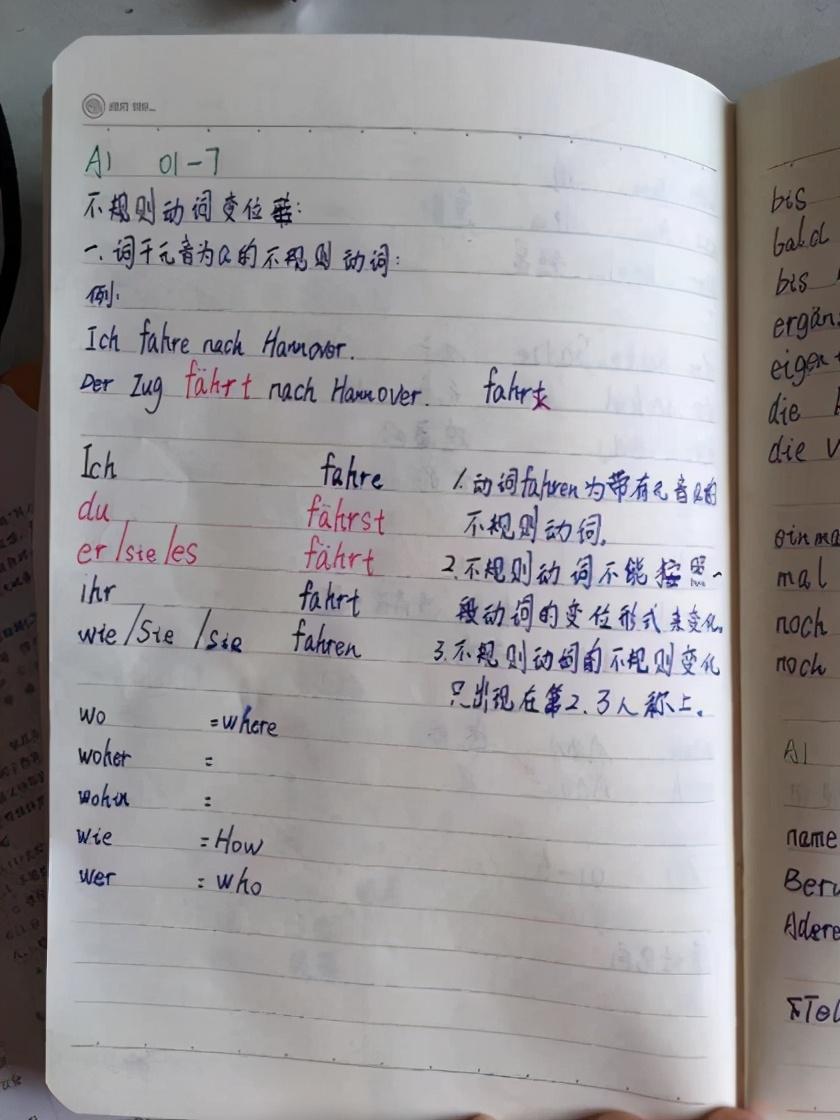 A1 01-7
不规则动词变位表:
一. 词干元音为a的不规则动词:
例:
Ich fahre nach Hannover.
Der Zug fährt nach Hannover. fahrt
Ich fahre
du fährst
er/sie/es fährt
ihr fahrt
wie/Sie/sie fahren
1.动词fahren为带有元音a的
不规则动词。
2.不规则动词不能按照一
般动词的变位形式来变化。
3.不规则动词的不规则变化
只出现在第2.3人称上。
wo =where
woher =
wohin =
wie =How
wer =who
bis
bald
bis
ergän
eigen
die
die
einma
mal
noch
noch
A1
name
Beru
Adere